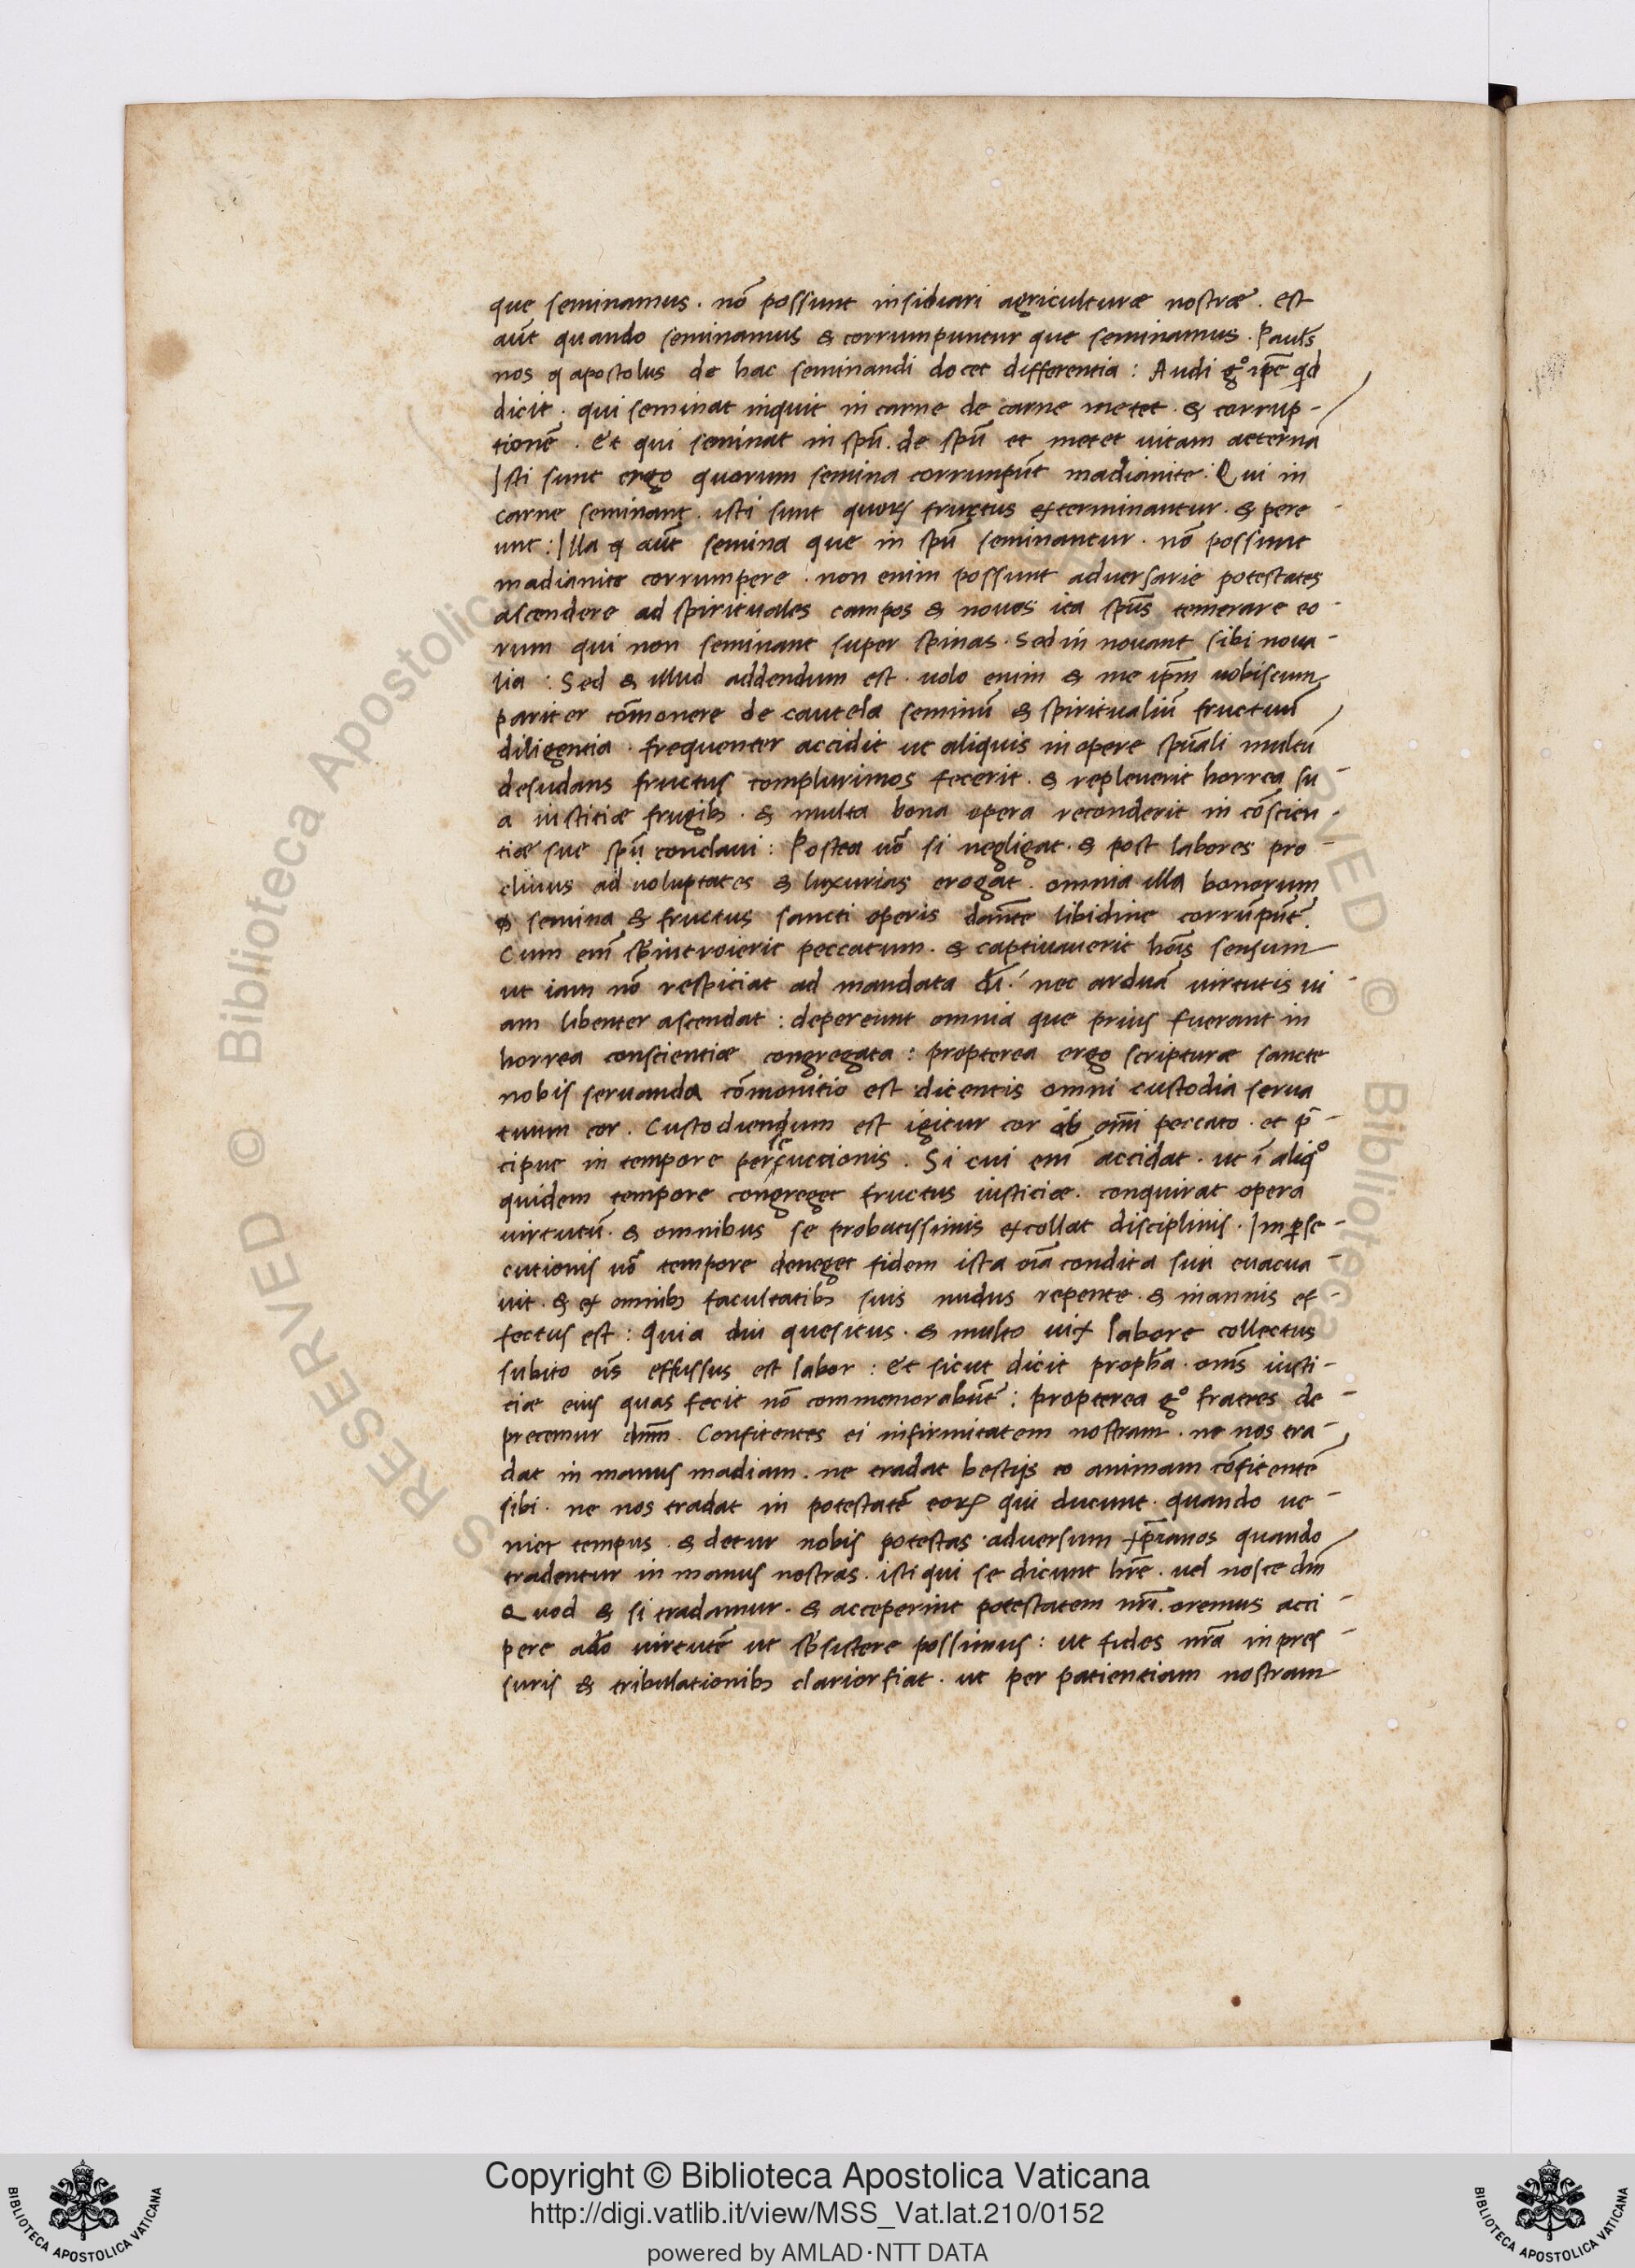 que seminamus. nō possunt insidiari agriculturæ nostræ. est
aūt quando seminamus & corrumpuntur que seminamus. Paul̄s
nos q apostolus de hac seminandi docet differentia: Audi g° ip̄e qd
dicit. qui seminat inquit in carne de carne metet. & corrup-
tionē. Et qui seminat in spū. de spū et metet uitam aeternā
Isti sunt ergo quorum semina corrumpūt madianite: Qui in
carne seminant. isti sunt quoꝝ fructus exterminantur. & pere-
unt: Illa q aūt semina que in spū seminantur. nō possunt
madianite corrumpere. non enim possunt aduersarie potestates
ascendere ad spirituales campos & nouos ita spūs temerare eo-
rum qui non seminant super spinas. Sed in nouant sibi noua-
lia: Sed & illud addendum est. uolo enim & me ip̄m uobiscum
pariter cōmonere de cautela seminū & spiritualiū fructuū
diligentia. frequenter accidit ut aliquis in opere spūali multū
desudans fructus complurimos fecerit. & repleuerit horrea su-
a iustitiæ frugib; & multa bona opera reconderit in cōscien-
tiæ sue spū conclaui: Postea uō si negligat. & post labores pro-
cliuus ad uoluptates & luxurias erogat. omnia illa bonorum
& semina & fructus sancti operis dānte libidine corrūpūt.
Cum enī sb̄introierit peccatum. & captiuauerit hoīs sensum
ut iam nō respiciat ad mandata dī. nec arduā uirtutis ui-
am libenter ascendat: depereunt omnia que prius fuerant in
horrea conscientiæ congregata: propterea ergo scripturæ sancte
nobis seruanda cōmonitio est dicentis omni custodia serua
tuum cor. Custodiendum est igitur cor ab om̄i peccato. et p̄-
cipue in tempore persecutionis. Si cui enī accidat. ut ī aliq°
quidem tempore congreget fructus iusticiæ. conquirat opera
uirtutū. & omnibus se probatissimis excollat disciplinis. In ꝑse-
cutionis uō tempore deneget fidem ista oīa condita sua euacua-
uit. & ex omnib; facultatib; suis nudus repente. & inannis ef-
fectus est: Quia diu quesitus. & multo uix labore collectus
subito oīs effussus est labor: Et sicut dicit proph̄a. om̄s iusti-
tiæ eius quas fecit nō commemorabūt: propterea g° fratres de-
precemur dn̄m. Confitentes ei infirmitatem nostram. ne nos tra-
dat in manus madiam. ne tradat bestijs eo animam cōfitentē
sibi. ne nos tradat in potestatē eoꝝ qui ducunt. quando ue-
niet tempus. & detur nobis potestas aduersum xp̄ianos quando
tradentur in manus nostras. isti qui se dicunt hr̄e. uel nosce dn̄
Quod & si tradamur. & acceperint potestatem nr̄i. oremus acci-
pere a dō uirtutē ut sb̄sistere possimus: ut fides nr̄a in pres-
suris & tribullationib; clarior fiat. ut per patientiam nostram
Copyright © Biblioteca Apostolica Vaticana
http://digi.vatlib.it/view/MSS_Vat.lat.210/0152
powered by AMLAD·NTT DATA
BIBLIOTECA APOSTOLICA VATICANA
BIBLIOTECA APOSTOLICA VATICANA